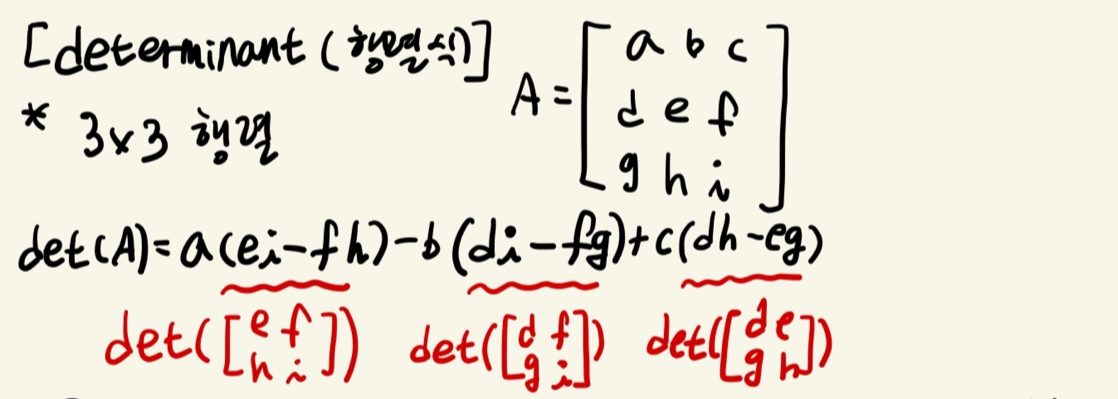 [determinant (행렬식)]
* 3x3 행렬
A = [a b c
d e f
g h i]
det(A)= a(ei-fh)-b(di-fg)+c(dh-eg)
det([e f
h i]) det([d f
g i]) det([d e
g h])